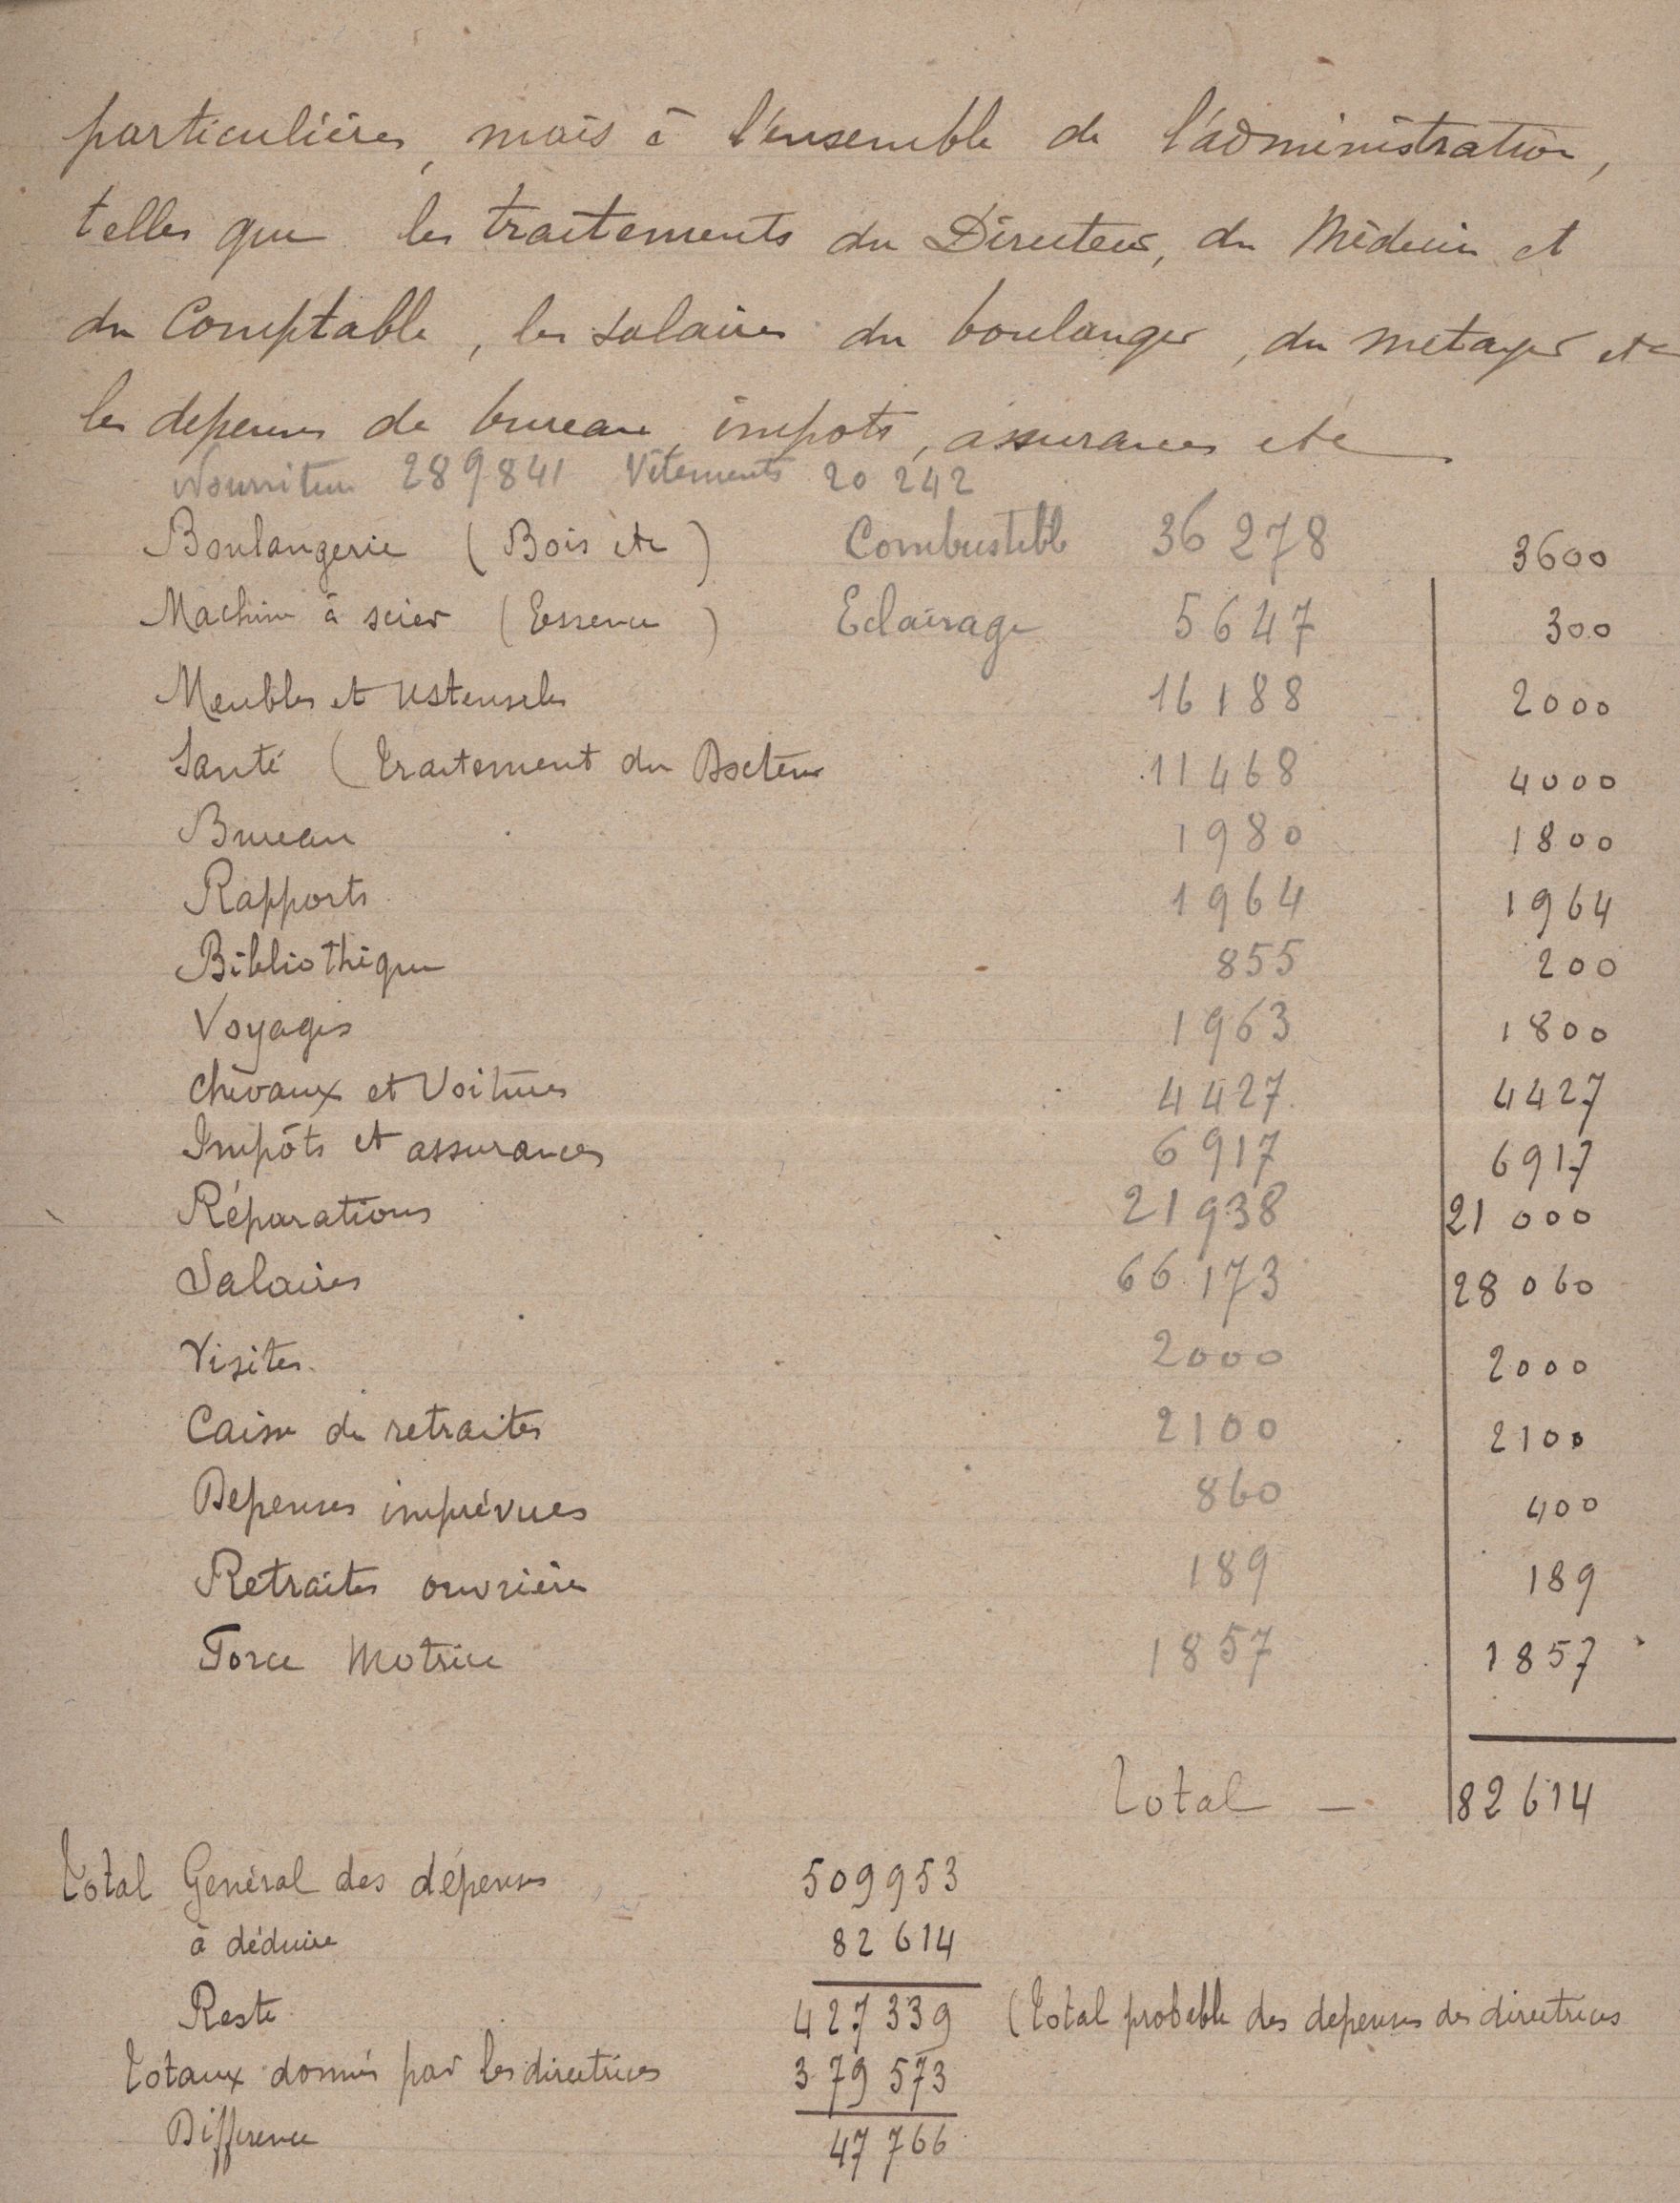 particulières, mais à l'ensemble de l'administration,
telles que les traitements du Directeur, du Médecin et
du Comptable, les salaires du boulanger, du metayer etc
les depenses de bureau, impots, assurances etc
Nourriture 289841 Vêtements 20 242
Boulangerie (Bois etc) Combustible 36 278 3600
Machine à scier (Essence) Eclairage 5647 300
Meubles et Ustensiles 16188 2000
Santé (Traitement du Docteur 11468 4000
Bureau 1980 1800
Rapports 1964 1964
Bibliothèque 855 200
Voyages 1963 1800
Chevaux et Voitures 4427 4427
Impôts et assurances 6917 6917
Réparations 21938 21 000
Salaires 66 173 28 060
Visites 2000 2000
Caisse de retraites 2100 2100
Depenses imprévues 860 400
Retraites ouvrières 189 189
Force Motrice 1857 1857
Total — 82 614
Total Général des dépenses 509953
à déduire 82 614
Reste 427 339 (Total probable des depenses des directrices
Totaux donnés par les directrices 379 573
Difference 47 766